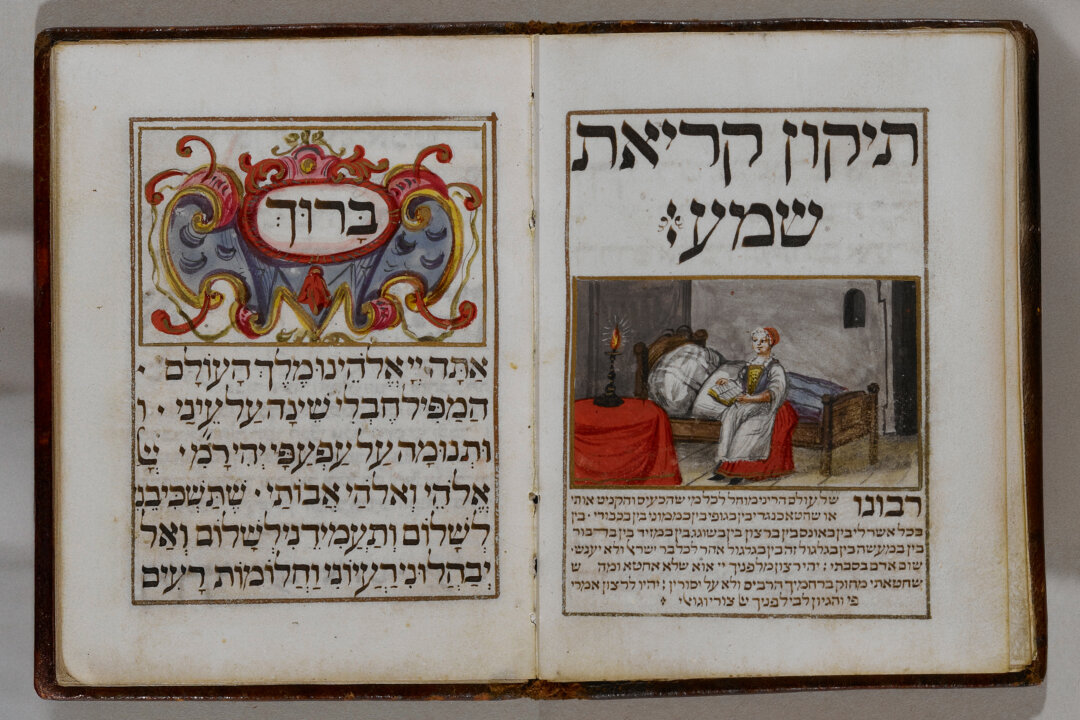 תיקון קריאת
שמע :
רבונו של עולם הריני מוחל לכל מי שהכעיס והקניט אותי
או שחטא כנגדי בין בגופי בין בממוני בין בכבודי · בין
בכל אשר לי בין באונס בין ברצון בין בשוגג בין במזיד בין בדיבור
בין במעשה בין בגלגול זה בין בגלגול אחר לכל בר ישר׳ ולא יענש׳
שום אדם בסבתי : יהי רצון מלפניך יי׳ שלא אחטא ומה ש
שחטאתי מחוק ברחמיך הרבים ולא על יסורין : יהיו לרצון אמרי
פי והגיון לבי לפניך צורי וגואלי :
בָּרוּךְ :
אַתָּה יְיָ אֱלֹהֵינוּ מֶלֶךְ הָעוֹלָם ·
הַמַּפִּיל חֶבְלֵי שֵׁינָה עַל עֵינַי · ו
וּתְנוּמָה עַל עַפְעַפָּי יְהִי רָ׳ מִ׳ ·
אֱלֹהַי וֵאלֹהֵי אֲבוֹתַי · שֶׁתַּשְׁכִּיבֵנִי
לְשָׁלוֹם וְתַעֲמִידֵנִי לְשָׁלוֹם וְאַל
יְבַהֲלוּנִי רַעְיוֹנַי וַחֲלוֹמוֹת רָעִים